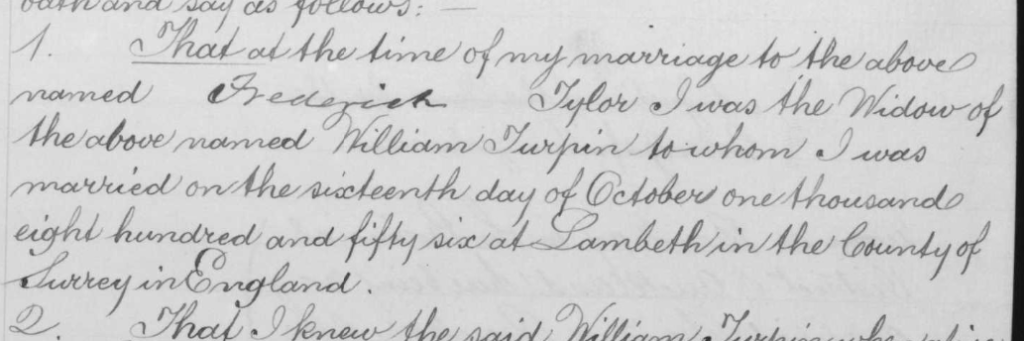 oath and say as follows: —
1. That at the time of my marriage to the above
named Frederick Tylor I was the Widow of
the above named William Turpin to whom I was
married on the sixteenth day of October one thousand
eight hundred and fifty six at Lambeth in the County of
Surrey in England.
2. That I knew the said William Turpin who